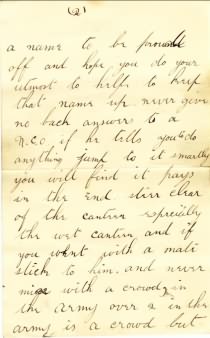 (2)
a name to be proude
off and hope you do your
utmost to help to keep
that name up never give
no back answer to a
N.C.O if he tells you to do
anything jump to it smartly
you will find it pays
in the end stere clear
of the canteen especially
the wet canteen and if
you went with a mate
stick to him. and never
mix with a crowd, in
the army over 2 in the
army is a crowd but